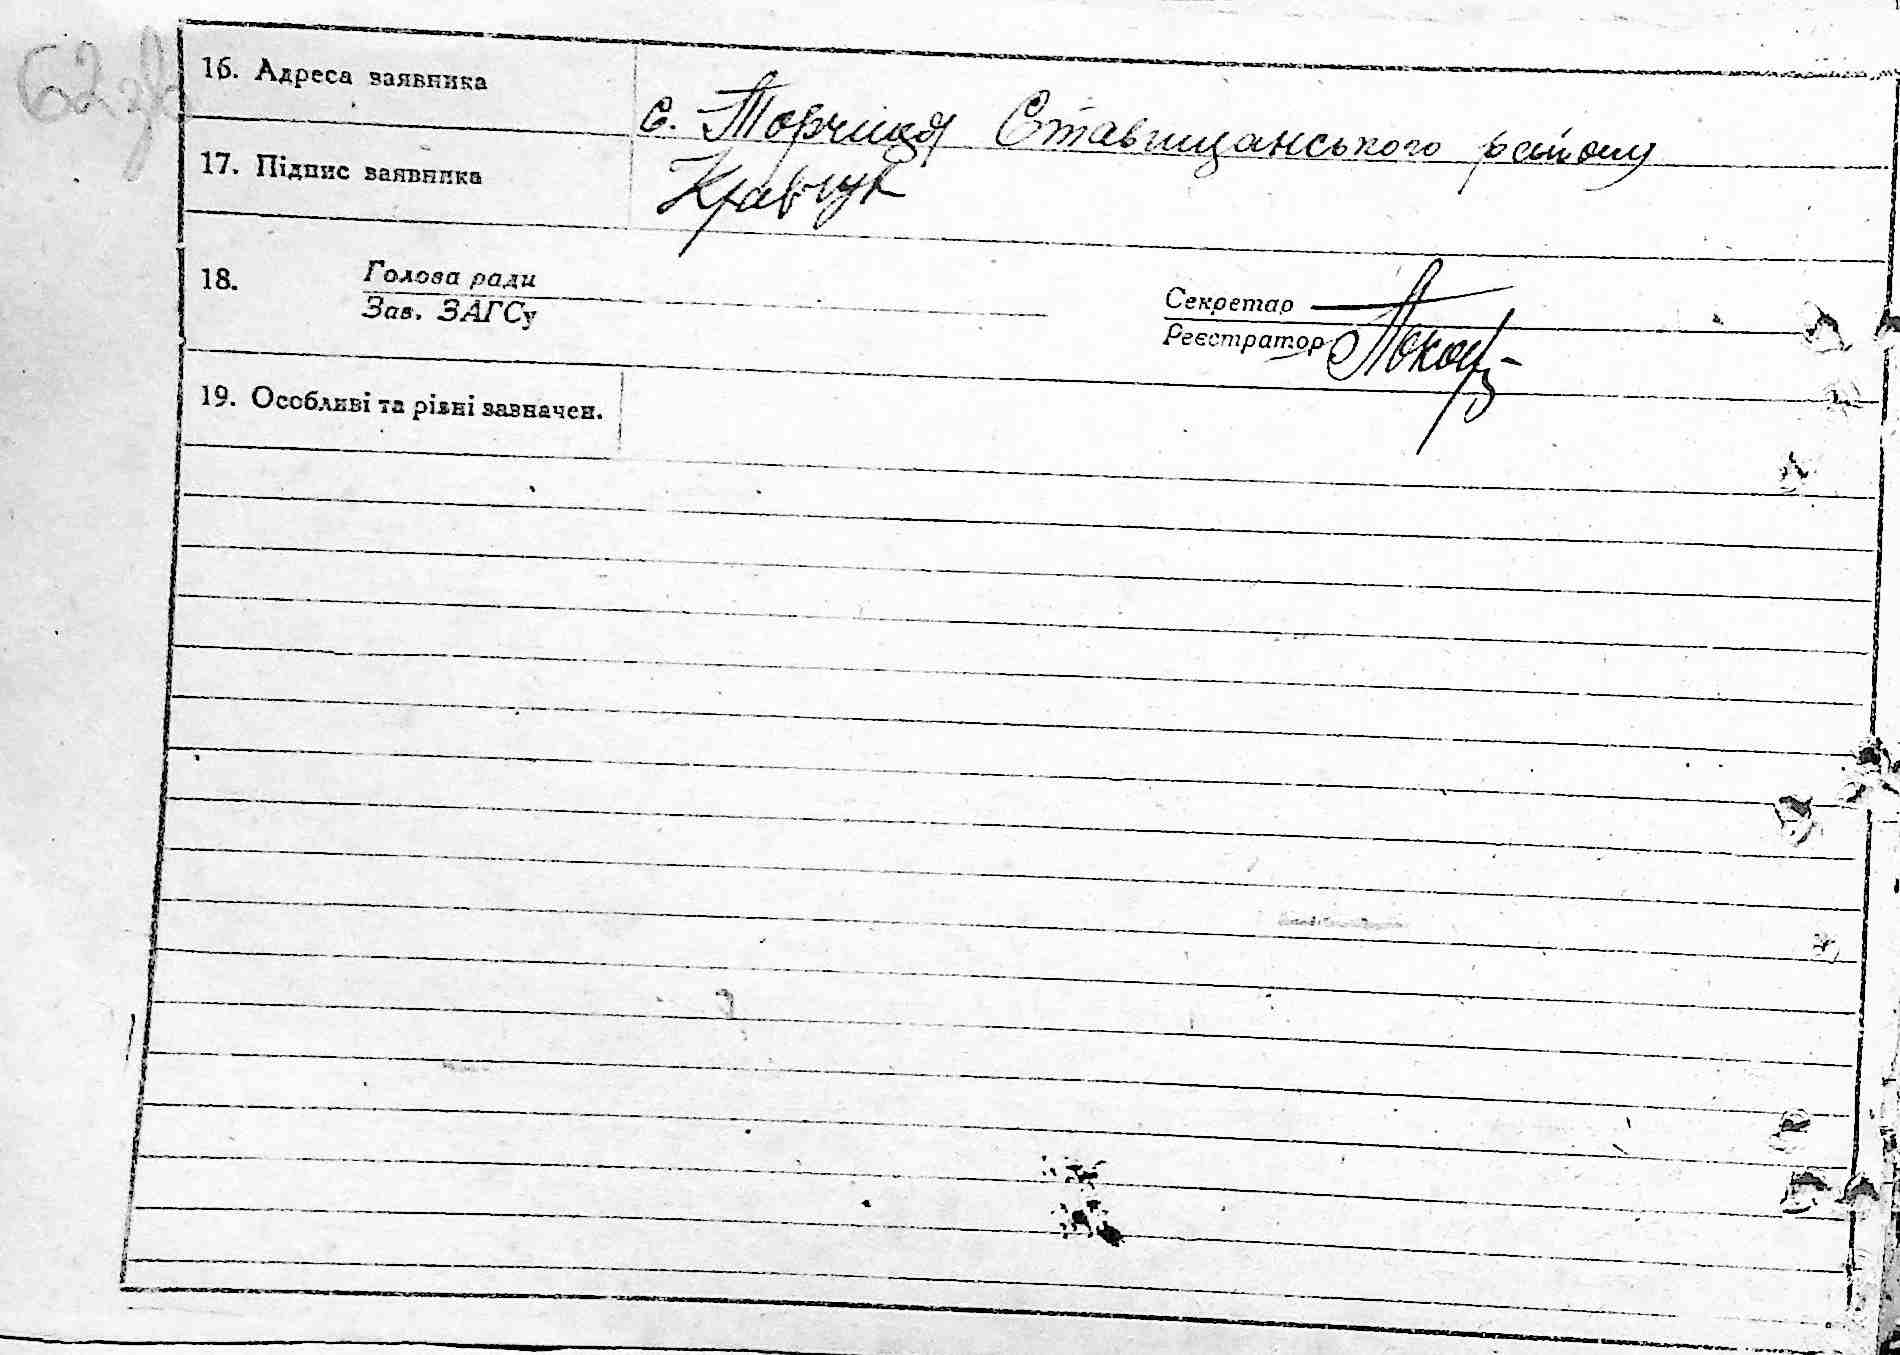 62зв
16. Адреса заявника
с. Торчиця Ставищанського району
17. Підпис заявника
Кравчук
18. Голова ради
Зав. ЗАГСу
Секретар
Реєстратор
19. Особливі та різні зазначен.